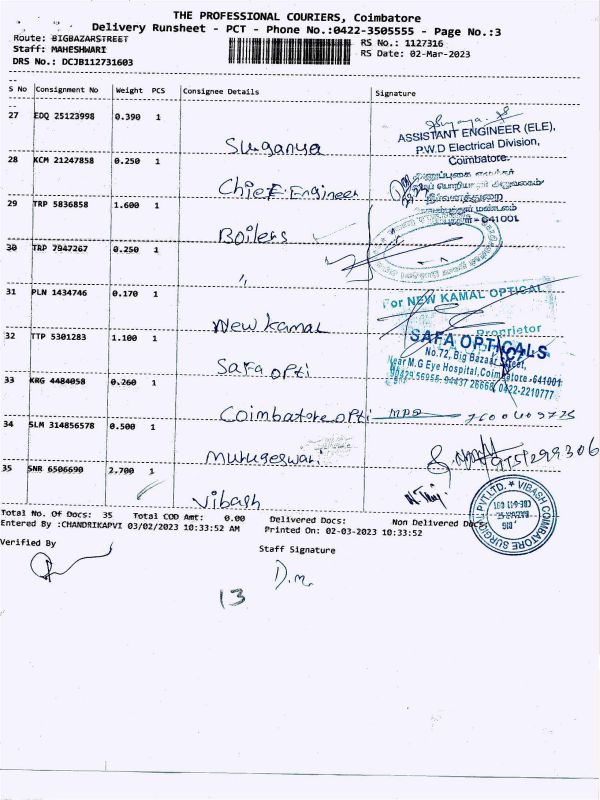 THE PROFESSIONAL COURIERS, Coimbatore
Delivery Runsheet - PCT - Phone No.:0422-3505555 - Page No.:3
Route: BIGBAZARSTREET
RS No.: 1127316
Staff: MAHESHWARI
RS Date: 02-Mar-2023
DRS No.: DCJB112731603
S No Consignment No Weight PCS Consignee Details Signature
27 EDQ 25123998 0.390 1
Suganya
ASSISTANT ENGINEER (ELE),
P.W.D Electrical Division,
Coimbatore.
28 KCM 21247858 0.250 1
Chief Engineer
29 TRP 5836858 1.600 1
- 641001
Boilers
30 TRP 7947267 0.250 1
"
31 PLN 1434746 0.170 1
For NEW KAMAL OPTICAL
New Kamal
Proprietor
32 TTP 5301283 1.100 1
SAFA OPTICALS
No.72, Big Bazaar Street,
Near M.G Eye Hospital, Coimbatore -641001
90429 56955, 94437 26666, 0422-2210777
Safa opti
33 KRG 4484058 0.260 1
Coimbatore opti
34 SLM 314856578 0.500 1
Murugeswari
35 SNR 6506690 2.700 1
Vibash
VIBASH COIMBATORE SURGI PVT LTD. ★
BIG
BAZAAR ST
CBE-641 001
Total No. Of Docs: 35 Total COD Amt: 0.00 Delivered Docs: Non Delivered Docs:
Entered By :CHANDRIKAPVI 03/02/2023 10:33:52 AM Printed On: 02-03-2023 10:33:52
Verified By
Staff Signature
D.m.
13